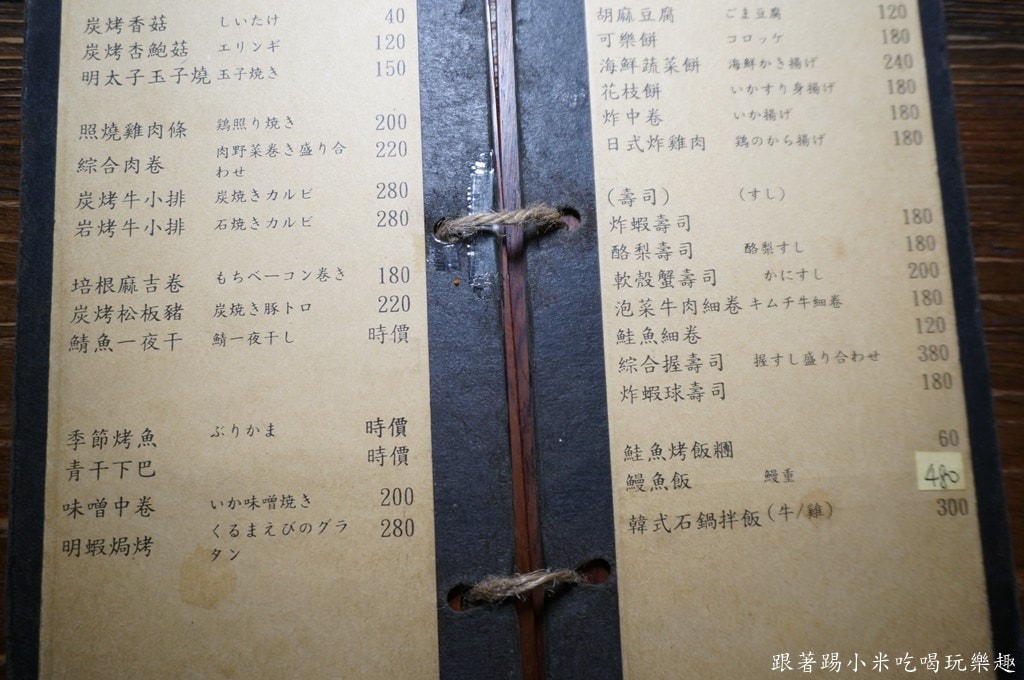 炭烤香菇 しいたけ 40
炭烤杏鮑菇 エリンギ 120
明太子玉子燒 玉子焼き 150
照燒雞肉條 鶏照り焼き 200
綜合肉卷 肉野菜巻き盛り合わせ 220
炭烤牛小排 炭焼きカルビ 280
岩烤牛小排 石焼きカルビ 280
培根麻吉卷 もちベーコン巻き 180
炭烤松板豬 炭焼き豚トロ 220
鯖魚一夜干 鯖一夜干し 時價
季節烤魚 ぶりかま 時價
青干下巴 時價
味噌中卷 いか味噌焼き 200
明蝦焗烤 くるまえびのグラタン 280
胡麻豆腐 ごま豆腐 120
可樂餅 コロッケ 180
海鮮蔬菜餅 海鮮かき揚げ 240
花枝餅 いかすり身揚げ 180
炸中卷 いか揚げ 180
日式炸雞肉 鶏のから揚げ 180
(壽司) (すし)
炸蝦壽司 180
酪梨壽司 酪梨すし 180
軟殼蟹壽司 かにすし 200
泡菜牛肉細卷 キムチ牛細卷 180
鮭魚細卷 120
綜合握壽司 握すし盛り合わせ 380
炸蝦球壽司 180
鮭魚烤飯糰 60
鰻魚飯 鰻重 480
韓式石鍋拌飯(牛/雞) 300
跟著踢小米吃喝玩樂趣